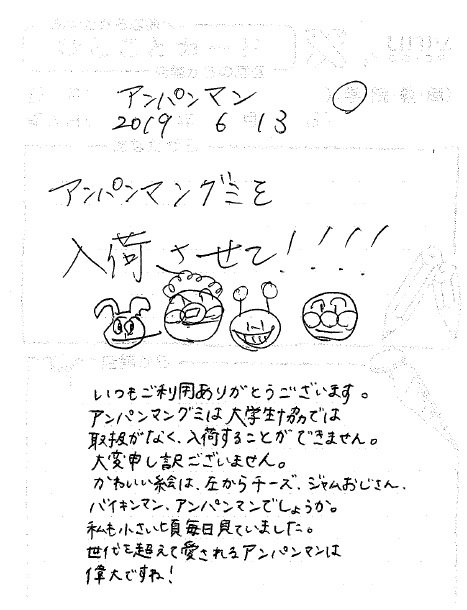 アンパンマン
2019 6 13
アンパンマングミを
入荷させて!!!!
いつもご利用ありがとうございます。
アンパンマングミは大学生協では
取扱がなく、入荷することができません。
大変申し訳ございません。
かわいい絵は、左からチーズ、ジャムおじさん、
バイキンマン、アンパンマンでしょうか。
私も小さい頃毎日見ていました。
世代を超えて愛されるアンパンマンは
偉大ですね!